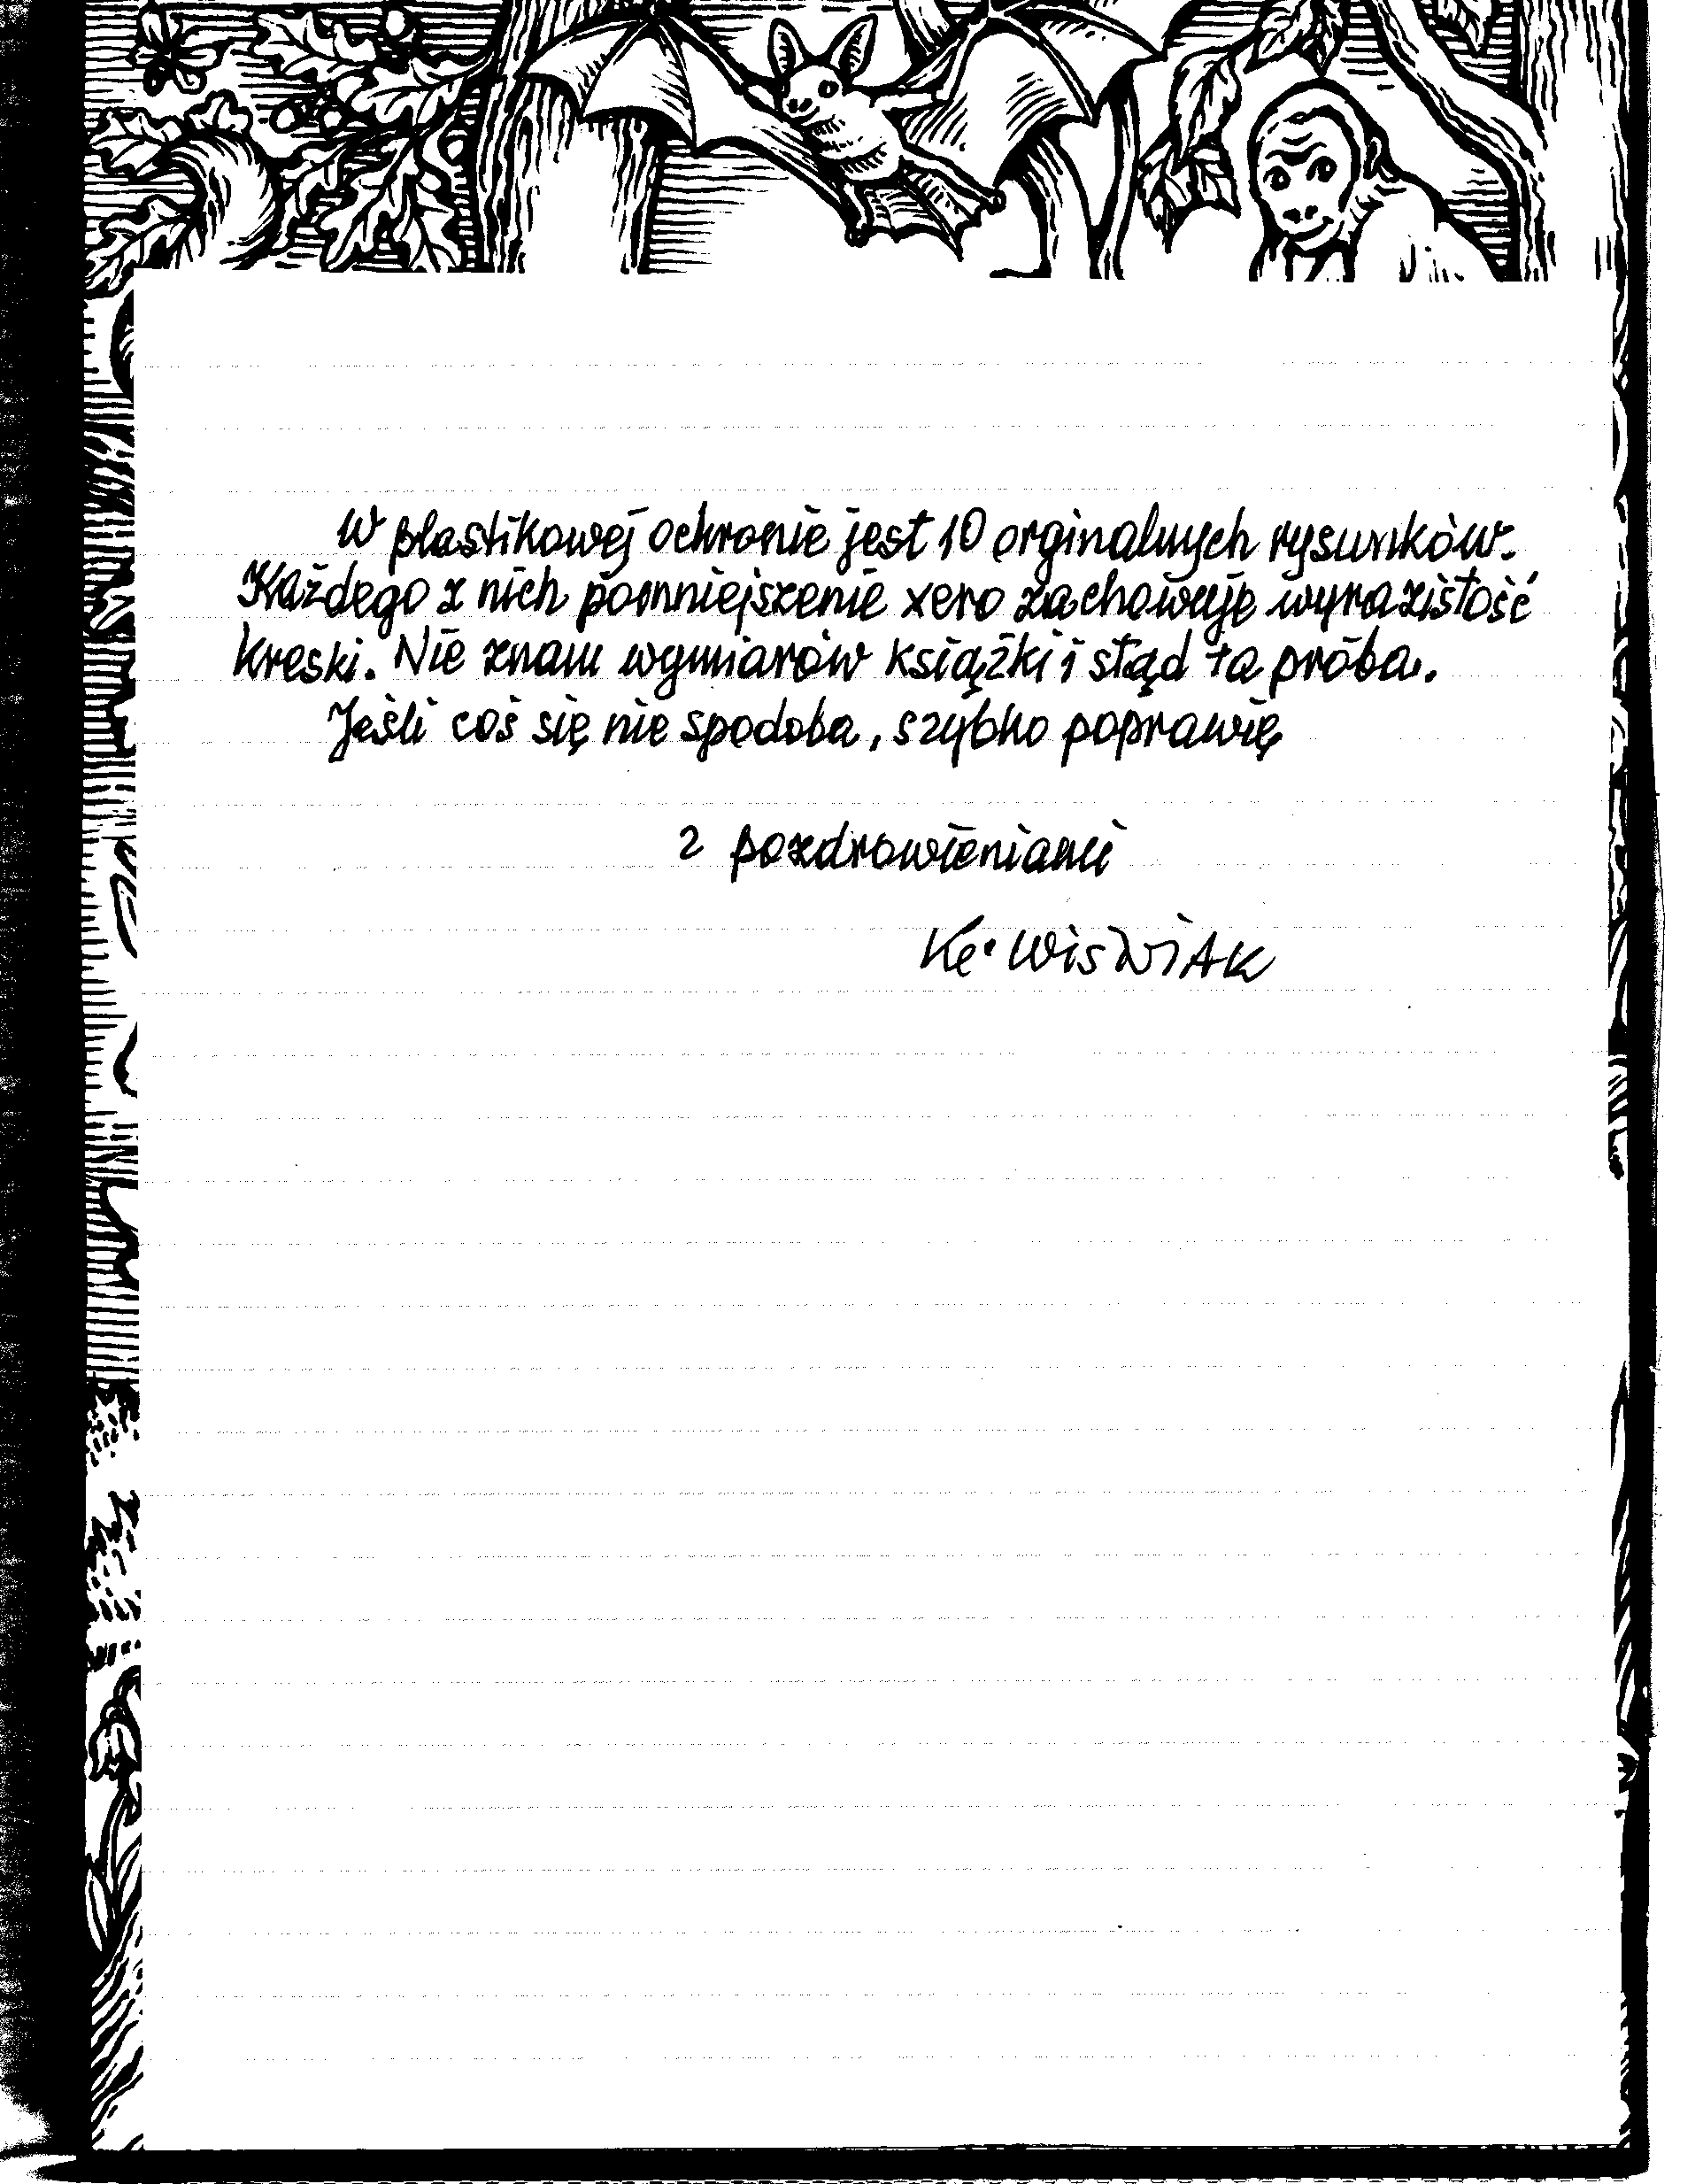 W plastikowej ochronie jest 10 orginalnych rysunków.
Każdego z nich pomniejszenie xero zachowuje wyrazistość
kreski. Nie znam wymiarów książki i stąd ta próba.
Jeśli coś się nie spodoba, szybko poprawię
Z pozdrowieniami
WiśNiAK